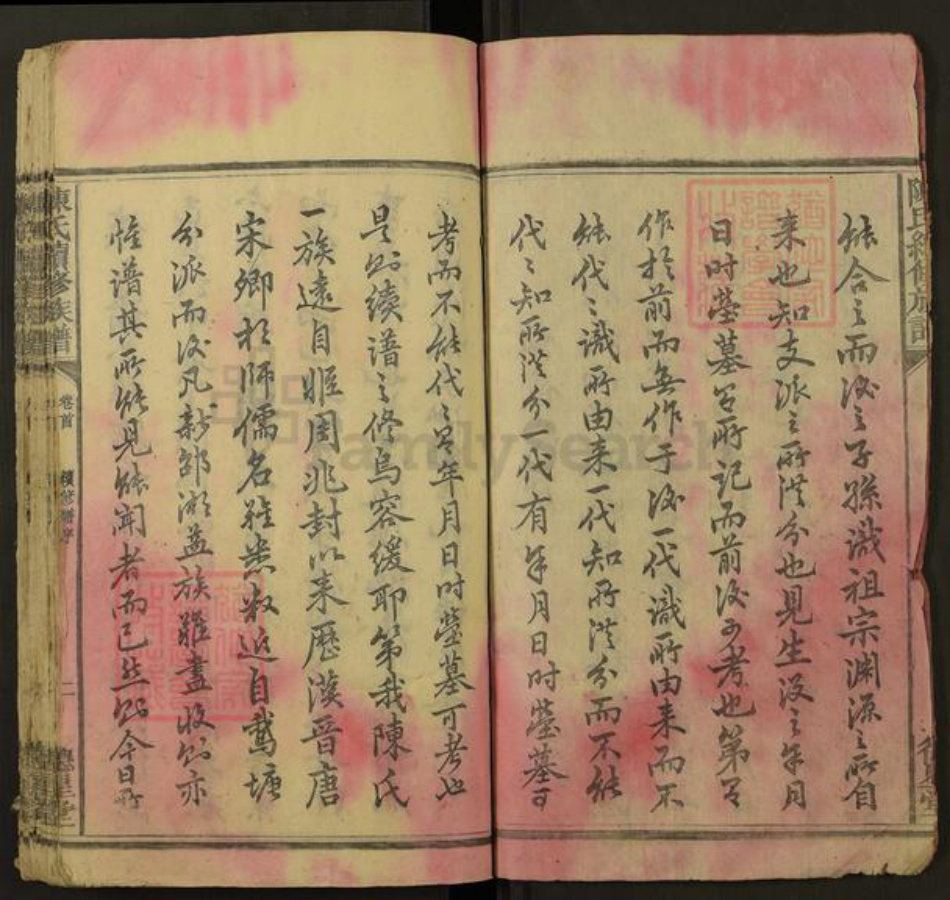 能合之而後之子孫識祖宗淵源之所自
來也知支派之所洪分也見生沒之年月
日時塋墓有所記而前後可考也第有
作於前而無作于後一代識所由來而不
能代之識所由来一代知所洪分而不能
代之知所洪分一代有年月日時塋墓可
考而不能代之有年月日時塋墓可考也
是則續譜之修烏容緩耶第我陳氏
一族遠自姬周兆封以来歷漢晋唐
宋鄉相師儒名難悉叙近自鵞塘
分派而後凡
湖益族難盡收則亦
惟譜其所能見能聞者而已然則今日所
陳氏續修族譜
卷首
續修譜序
二
FamilySearch